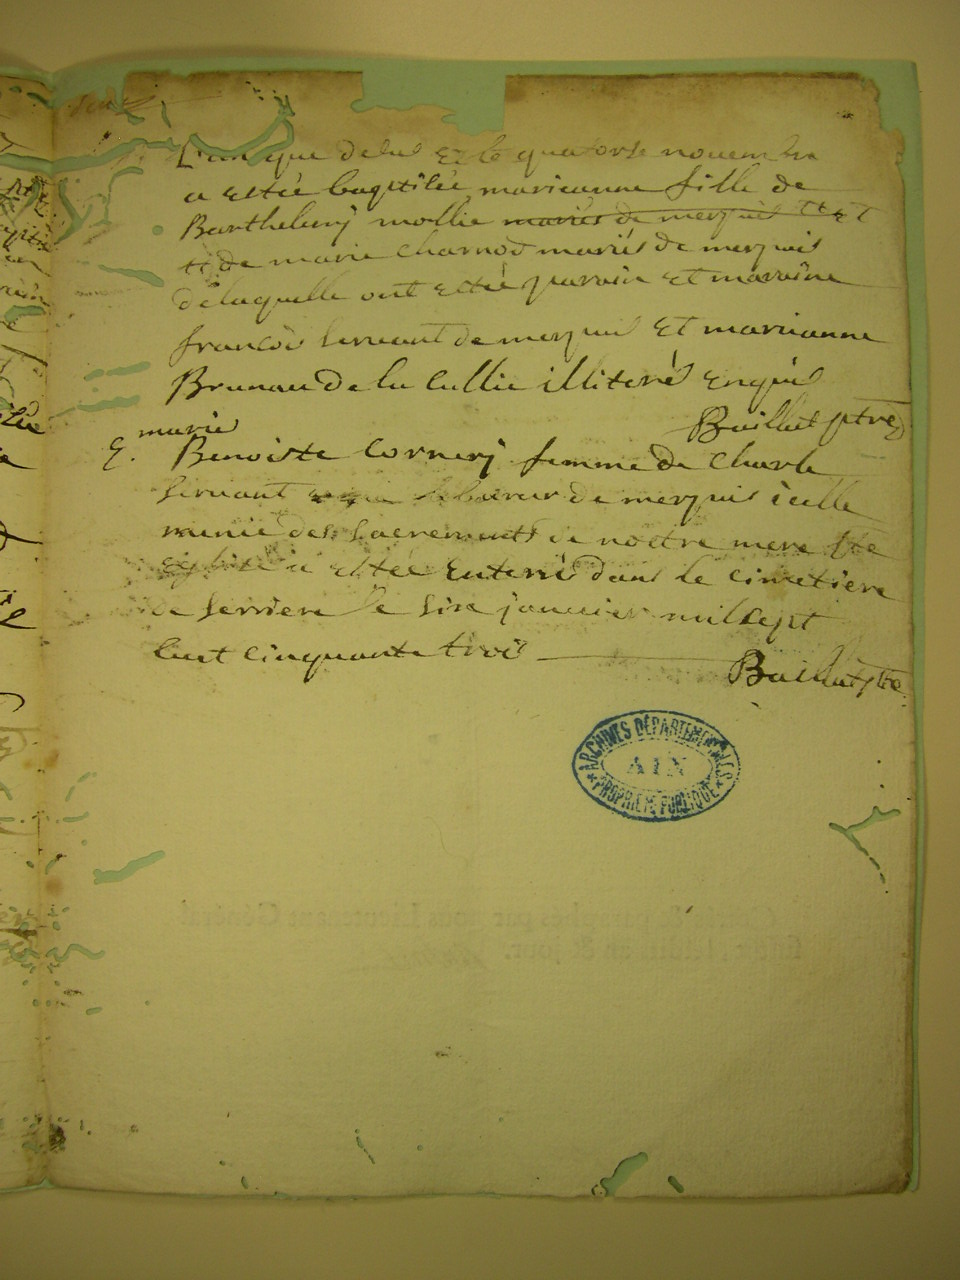 L'an que dessus et le quatorse novembre
a estée baptisée marieanne fille de
Barthelemj mollie mariés de merpuis et
et de marie Charnod mariés de merpuis
de laquelle ont estée parrain et maraine
francois servant de merpuis et marieanne
Brunan de la Cullie illiterés enquis
Baillat ptre
marie
E. Benoiste Cornerj femme de Charle
servant laboureur de merpuis icelle
munie des sacrements de nostre mere ste
eglise a estée enterré dans le cimetiere
de serriere le six janvier mil sept
cent cinquante trois
Baillat ptre
ARCHIVES DÉPARTEMENTALES
AIN
PROPRIÉTÉ PUBLIQUE
& paraphés par nous Lieutenant Général
an & jour.